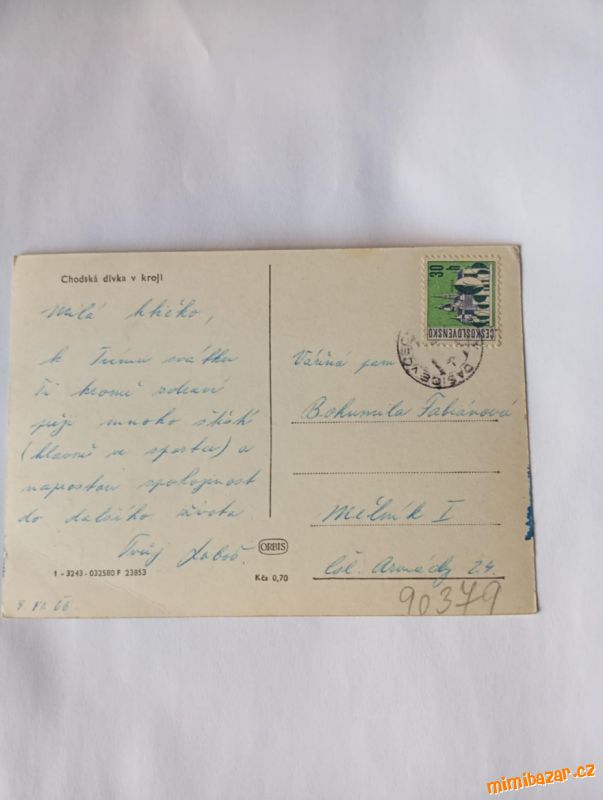 Chodská dívka v kroji
Milá
k Tvému svátku
Ti kromě zdraví
přeji mnoho štěstí
(hlavně ve sportu) a
naprostou spokojenost
do dalšího života
Tvůj
1 - 3243 - 032580 F 23853
ORBIS
Kčs 0,70
30 h
ČESKOSLOVENSKO
DAŠICE V ČECH
Vážená paní
Bohumila Fabiánová
Mělník I
Čsl. Armády 24.
90379
mimibazar.cz